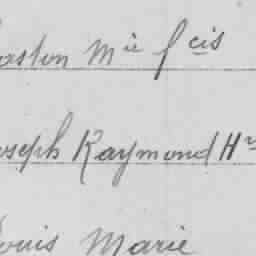 aston Mie fcis
oseph Raymond Hri
ouis Marie